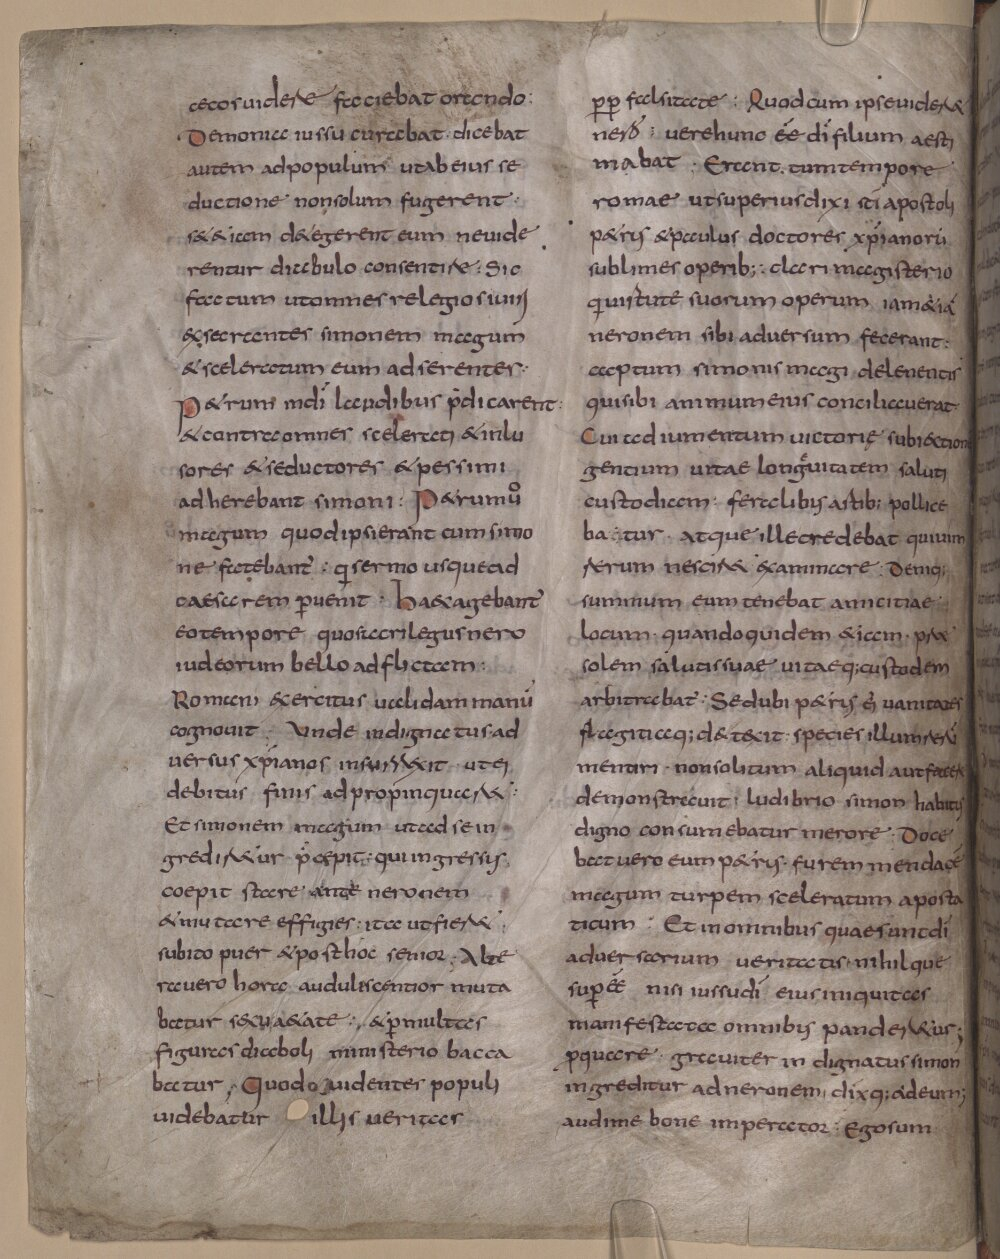 caecos videre faciebat oranndo:
Demoniac iussu curabat dicebat
autem ad populum ut ab eius se
ductione non solum fugerent.
s& &iam d&egerent eum ne vide
rentur diabulo consentire: Sic
factum ut omnes relegiosi uiri
&secrantes simonem magum
&sceleratum eum adserentes.
P&rum in dī laudibus p̄dicarent:
&contra omnes scelerati &inlu
sores &seductores &pessimi
adherebant simoni: P&rum ū
magum quod ipsi erant cum simo
ne fatebant̄: q̄ sermo usque ad
caesarem p̄uenit. Ha& agebant̄
eo tempore quo sacrilegus nero
iudeorum bello adflictam:
Romani &ercitus ualidam manū
cognouit. Unde indignatus ad
uersus xp̄ianos insurrexit uti
debitus finis adpropinquar&:
Et simonem magum ut ad se in
gredir&ur p̄cepit: qui ingressus
coepit stare ante neronem
&mutare effigies: ita ut fier&
subito puer &posthoc senior. Alte
ra uero hora adulescentior muta
batur s&ua&ate: &p̄ multas
figuras diaboli ministerio bacca
batur, Quod uidentes populi
uidebatur illis ueritas
p̄p̄ falsitate: Quod cum ipse uider&
nero: uere hunc ēē dī filium aesti
mabat. Erant tum tempore
romae ut superius dixi sc̄i apostoli
p&rus &paulus doctores xp̄ianorū
sublimes operib;: clari magisterio
qui uirtute suorum operum iam &iā
neronem sibi aduersum fecerant:
captum simonis magi delenentis
qui sibi animum eius conciliauerat
Cui ad iumentum uictorię subi&ction
gentium uitae longęuitatem saluti
custodiam: feralibus artib; pollice
ba:tur. atque ille credebat qui uim
rerum nescir& &aminare: Deniq;
summum eum tenebat amicitiae
locum. quandoquidem &iam. pr&
solem salutis suae uitaeq; custodem
arbitrabat. Sed ubi p&rus ei uanitates
flagitiaq; d&exit. species illum rerū
mentiri non solitum aliquid aut facer&
demonstrauit: ludibrio simon habitus
digno consumebatur merore: Doce
bat uero eum p&rus. furem mendacē
magum turpem sceleratum aposta
ticum: Et in omnibus quae sunt dī
aduersarium ueritatis. nihil que
sup̄ēē nisi iussu dī eius iniquitas
manifestata omnibus pander&ur;
p̄quare. grauiter indignatus simon
ingreditur ad neronem, dixq; ad eum;
audi me bone imperator: Ego sum